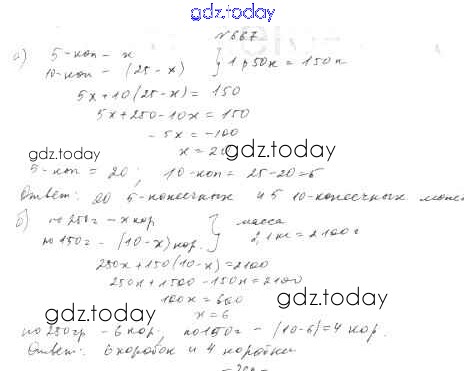 gdz.today
№667
а) 5-коп - x
10-коп - (25 - x) } 1р50к = 150к
5x + 10(25 - x) = 150
5x + 250 - 10x = 150
-5x = -100
x = 20
gdz.today
gdz.today
5-коп = 20; 10-коп = 25-20=5
Ответ: 20 5-копеечных и 5 10-копеечных монет
б) по 250г - x кор
по 150г - (10-x) кор. } масса 2,1кг = 2100г
gdz.today
250x + 150(10-x) = 2100
250x + 1500 - 150x = 2100
100x = 600
x = 6
gdz.today
gdz.today
по 250гр - 6 кор, по 150г - (10-6)=4 кор.
Ответ: 6 коробок и 4 коробки